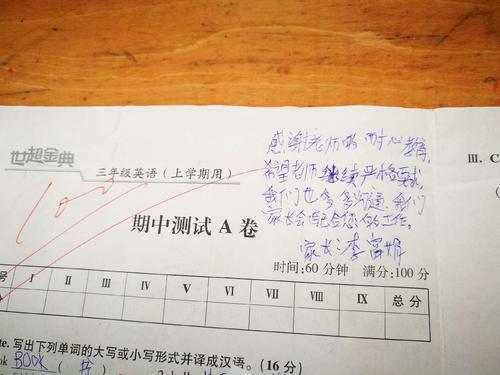 感谢老师的耐心教育,
希望老师继续严格要求,
我们也会多沟通,我们
家长会配合您的工作。
家长:李富娟
世超金典
三年级英语(上学期用)
100
期中测试 A 卷
时间:60 分钟 满分:100 分
号 I II III IV V VI VII VIII IX 总 分
分
te. 写出下列单词的大写或小写形式并译成汉语。(16 分)
ok BOOK ( 书 )
III. C
(